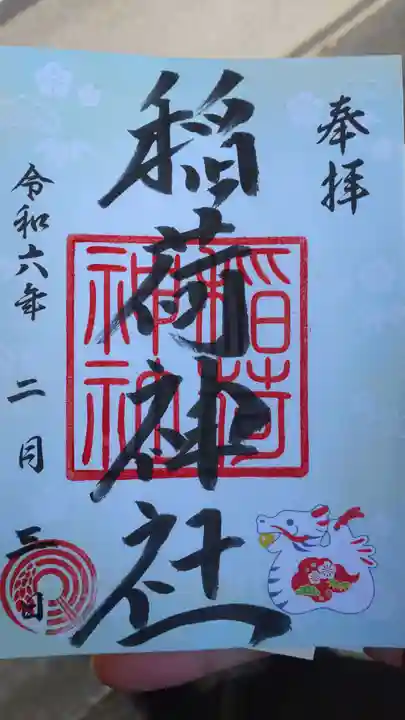 奉拝
稲荷神社
稲荷
神社
令和六年 二月 三日